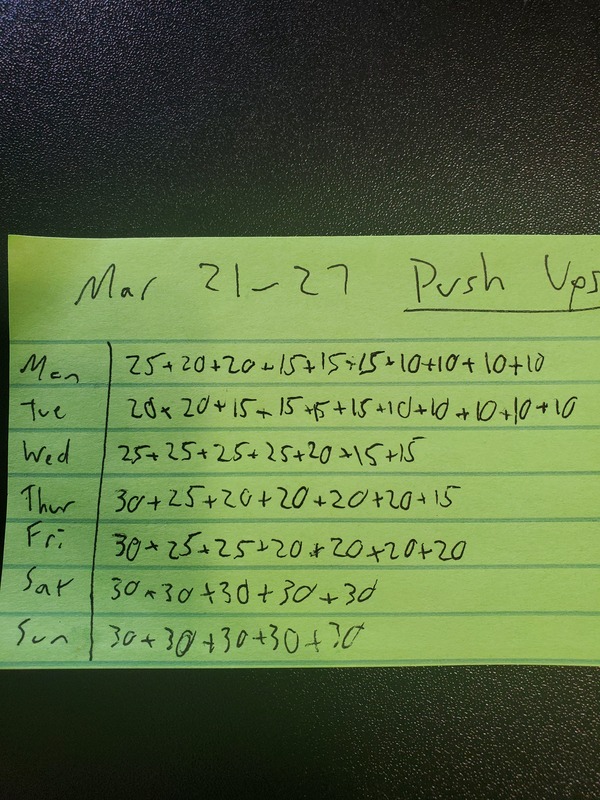 Mar 21-27 Push Ups
Mon 25+20+20+15+15+15+10+10+10+10
Tue 20+20+15+15+15+15+10+10+10+10+10
Wed 25+25+25+25+20+15+15
Thur 30+25+20+20+20+20+15
Fri 30+25+25+20+20+20+20
Sat 30+30+30+30+30
Sun 30+30+30+30+30